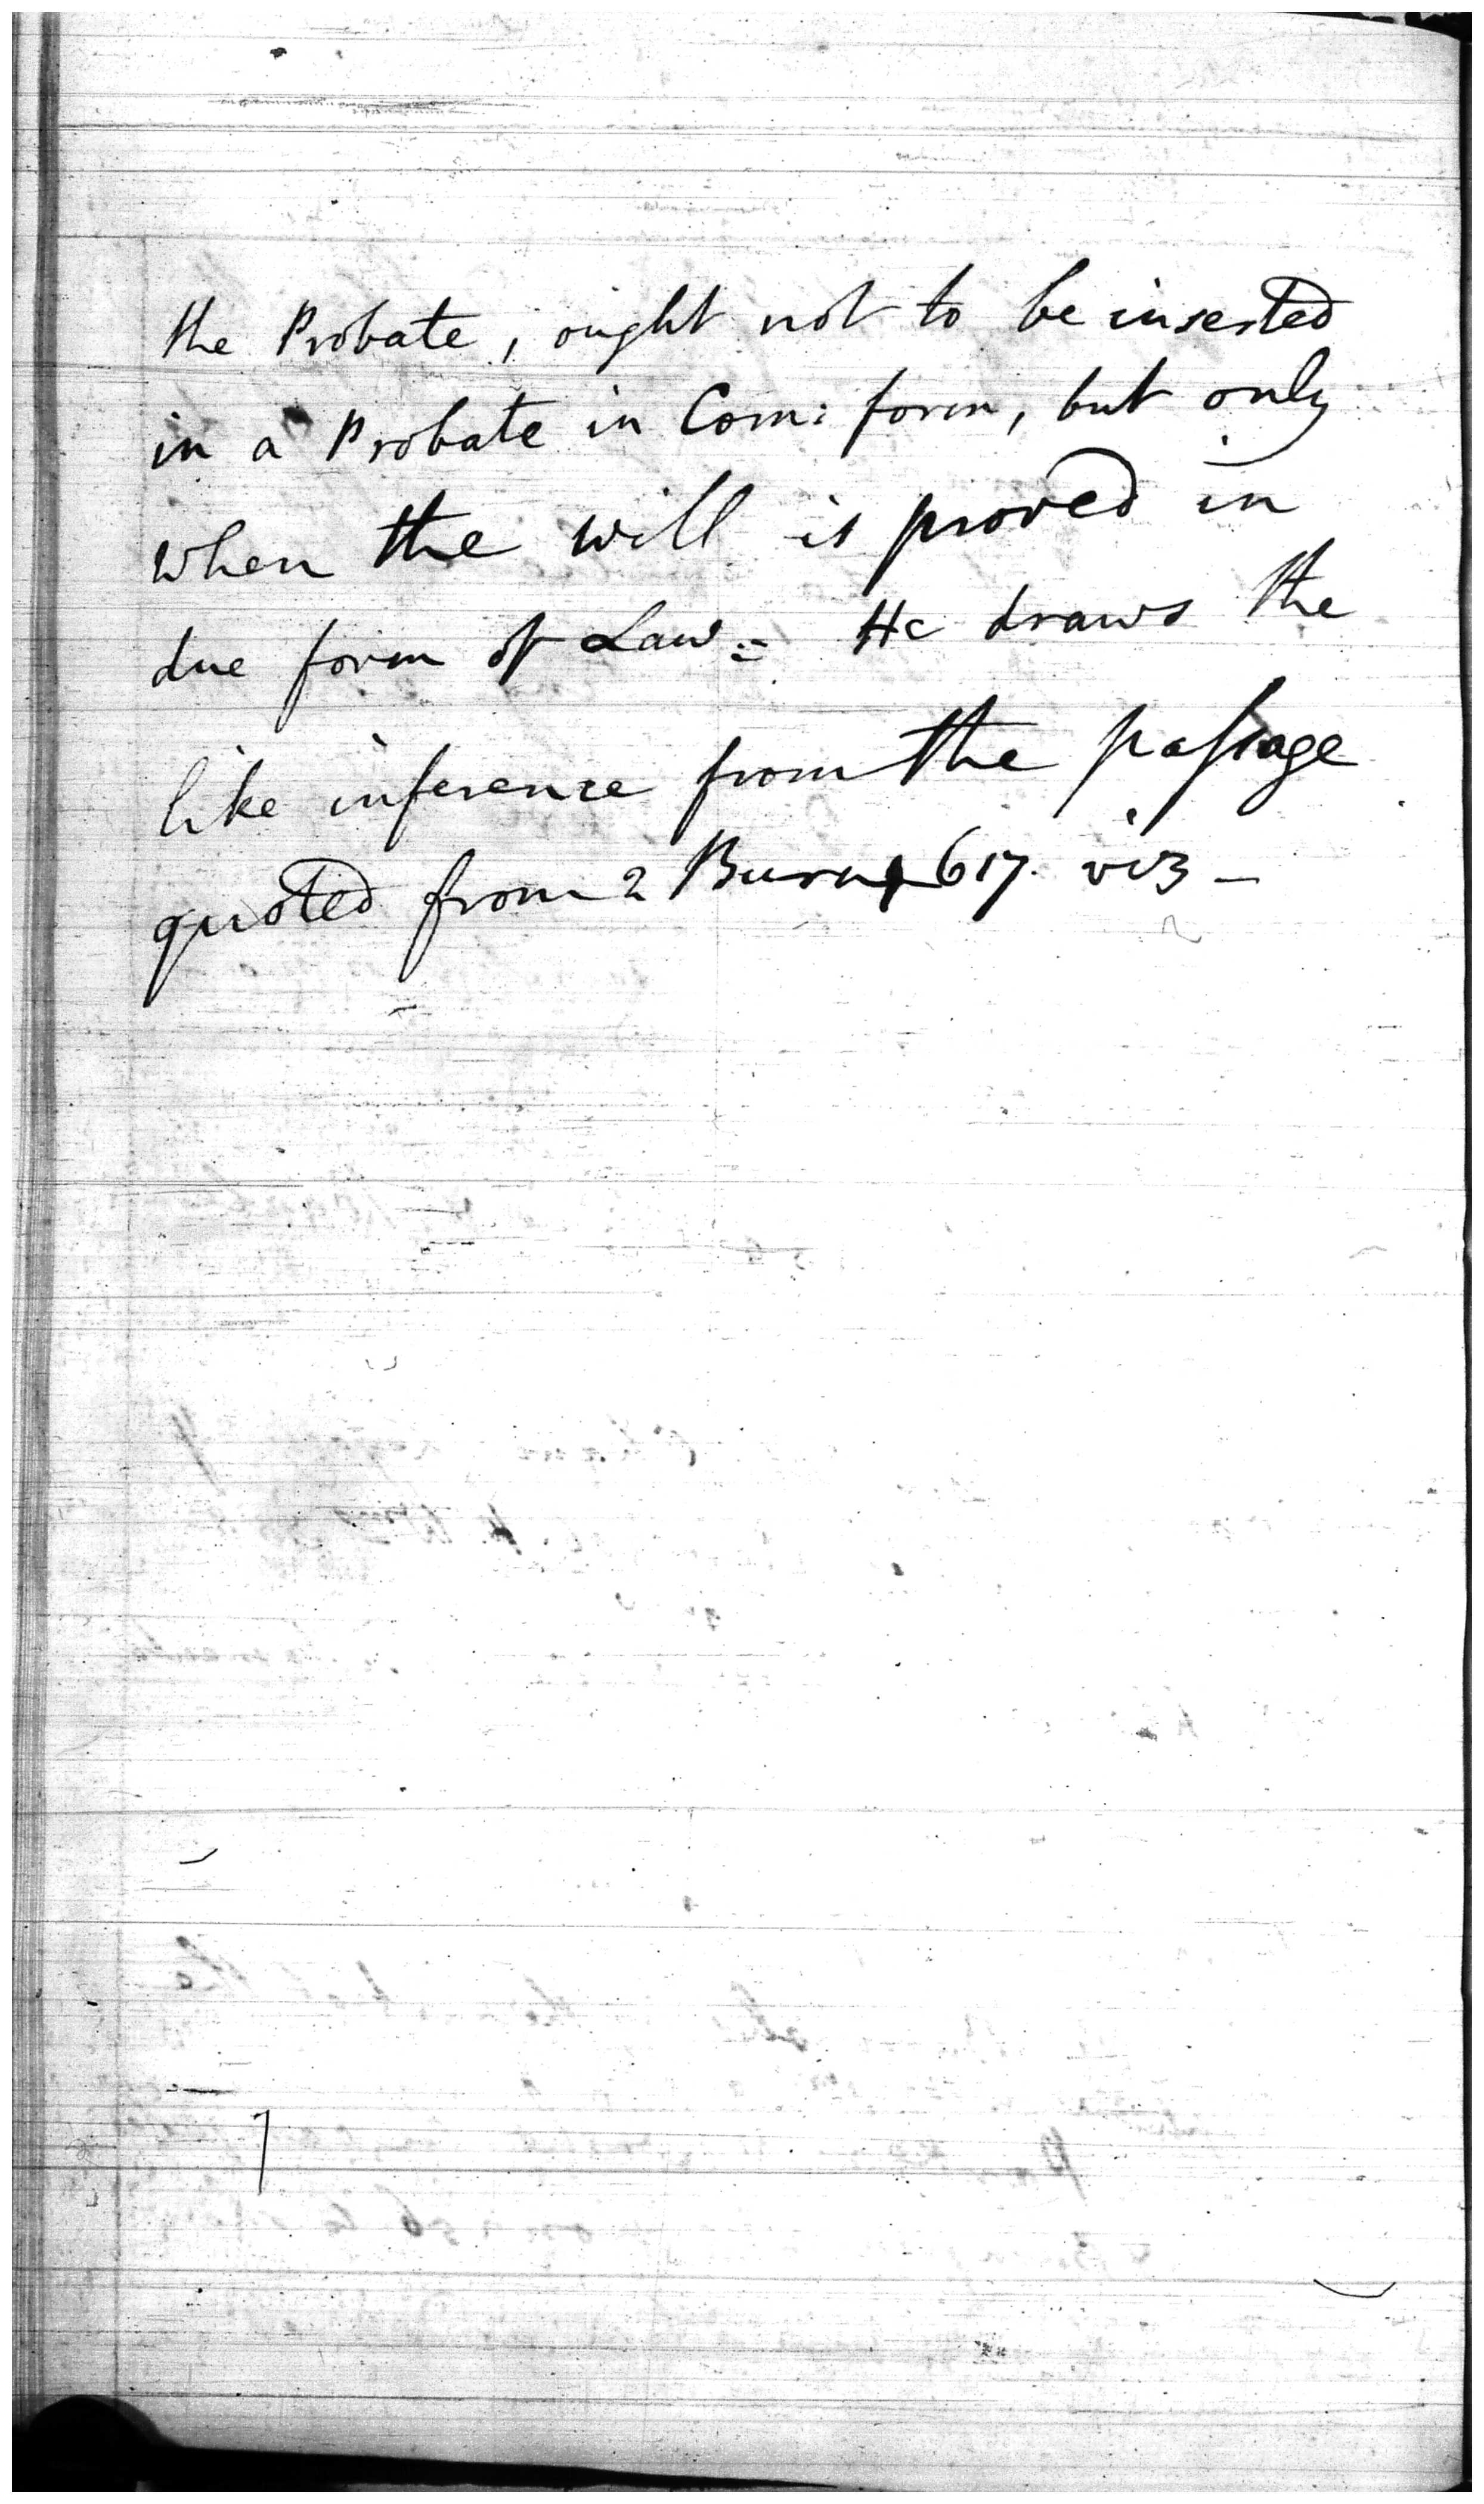 the Probate, ought not to be inserted
in a Probate in Com: form, but only
when the will is proved in
due form of Law:- He draws the
like inference from the paſsage
quoted from 2 Burn, 617. viz -